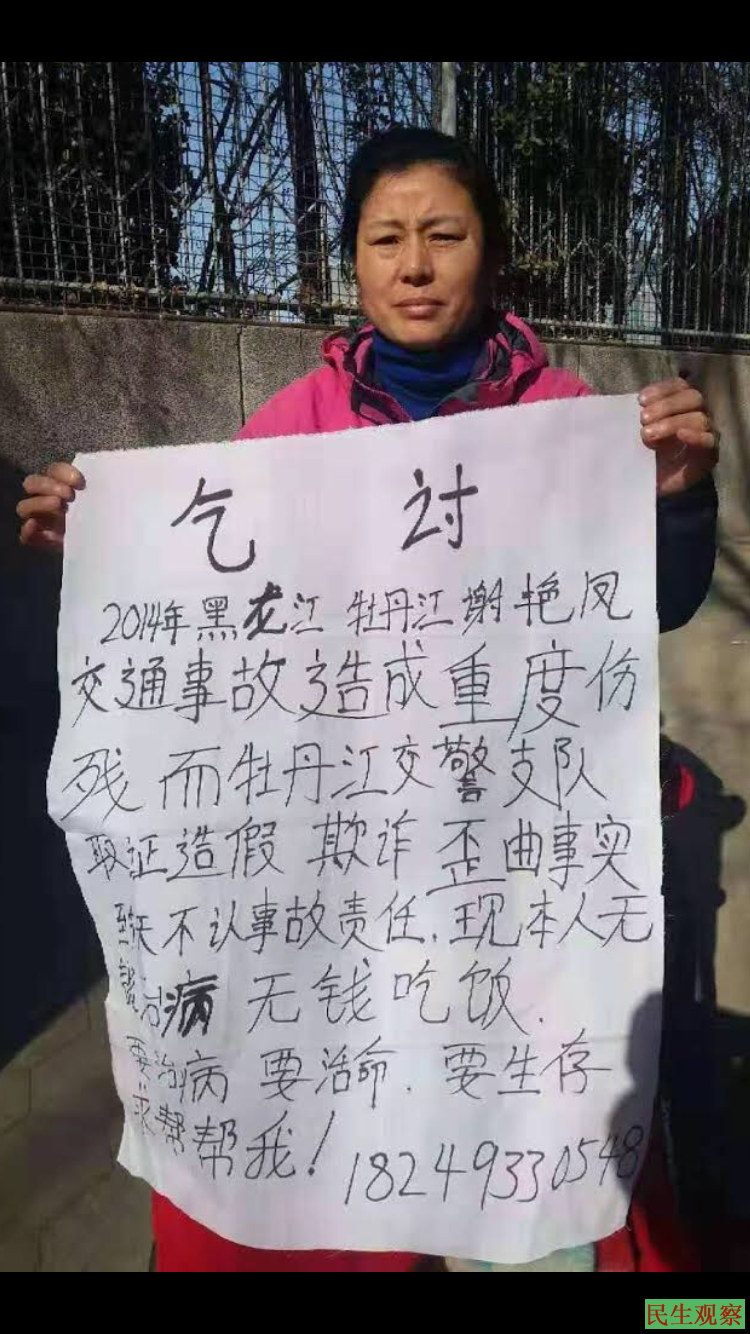 乞 讨
2014年黑龙江 牡丹江谢艳凤
交通事故造成重度伤
残 而牡丹江交警支队
取证造假 欺诈 歪曲事实
至今天不认事故责任.现本人无
钱治病 无钱吃饭.
要治病 要活命.要生存
求帮帮我! 18249330548
民生观察